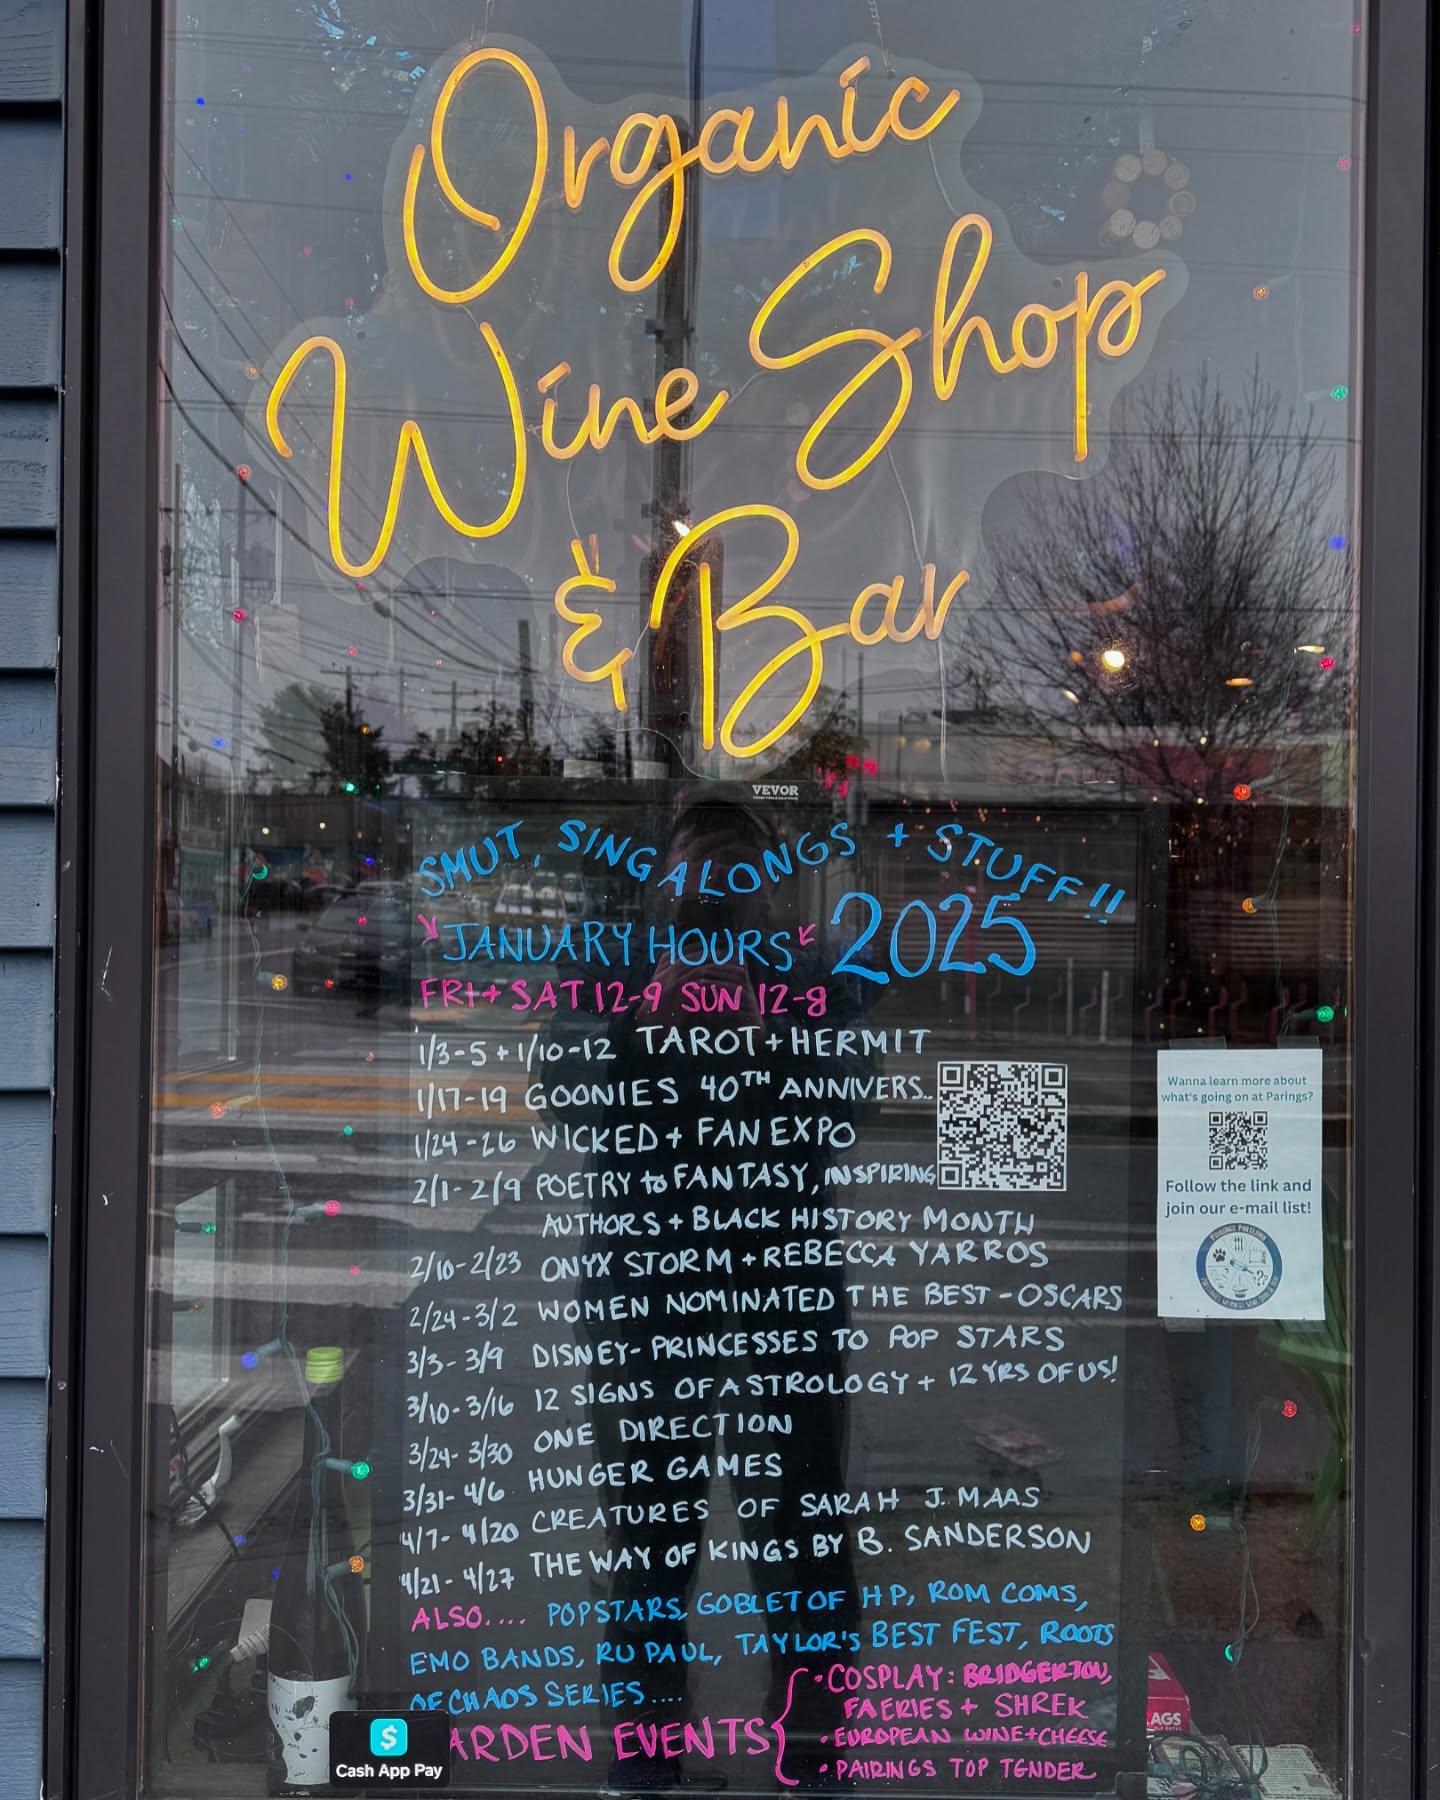 Organic
Wine Shop
& Bar
VEVOR
SMUT, SINGALONGS + STUFF!!
JANUARY HOURS 2025
FRI + SAT 12-9 SUN 12-8
1/3-5 + 1/10-12 TAROT + HERMIT
1/17-19 GOONIES 40TH ANNIVERS..
1/24-26 WICKED + FAN EXPO
2/1-2/9 POETRY to FANTASY, INSPIRING
AUTHORS + BLACK HISTORY MONTH
2/10-2/23 ONYX STORM + REBECCA YARROS
2/24-3/2 WOMEN NOMINATED THE BEST - OSCARS
3/3-3/9 DISNEY- PRINCESSES TO POP STARS
3/10-3/16 12 SIGNS OF ASTROLOGY + 12 YRS OF US!
3/24-3/30 ONE DIRECTION
3/31-4/6 HUNGER GAMES
4/7-4/20 CREATURES OF SARAH J. MAAS
4/21-4/27 THE WAY OF KINGS BY B. SANDERSON
ALSO.... POPSTARS, GOBLET OF HP, ROM COMS,
EMO BANDS, RU PAUL, TAYLOR'S BEST FEST, ROOTS
OF CHAOS SERIES....
ARDEN EVENTS
• COSPLAY: BRIDGERTON,
FAERIES + SHREK
• EUROPEAN WINE + CHEESE
• PAIRINGS TOP TENDER
Wanna learn more about
what's going on at Parings?
Follow the link and
join our e-mail list!
AGS
Cash App Pay